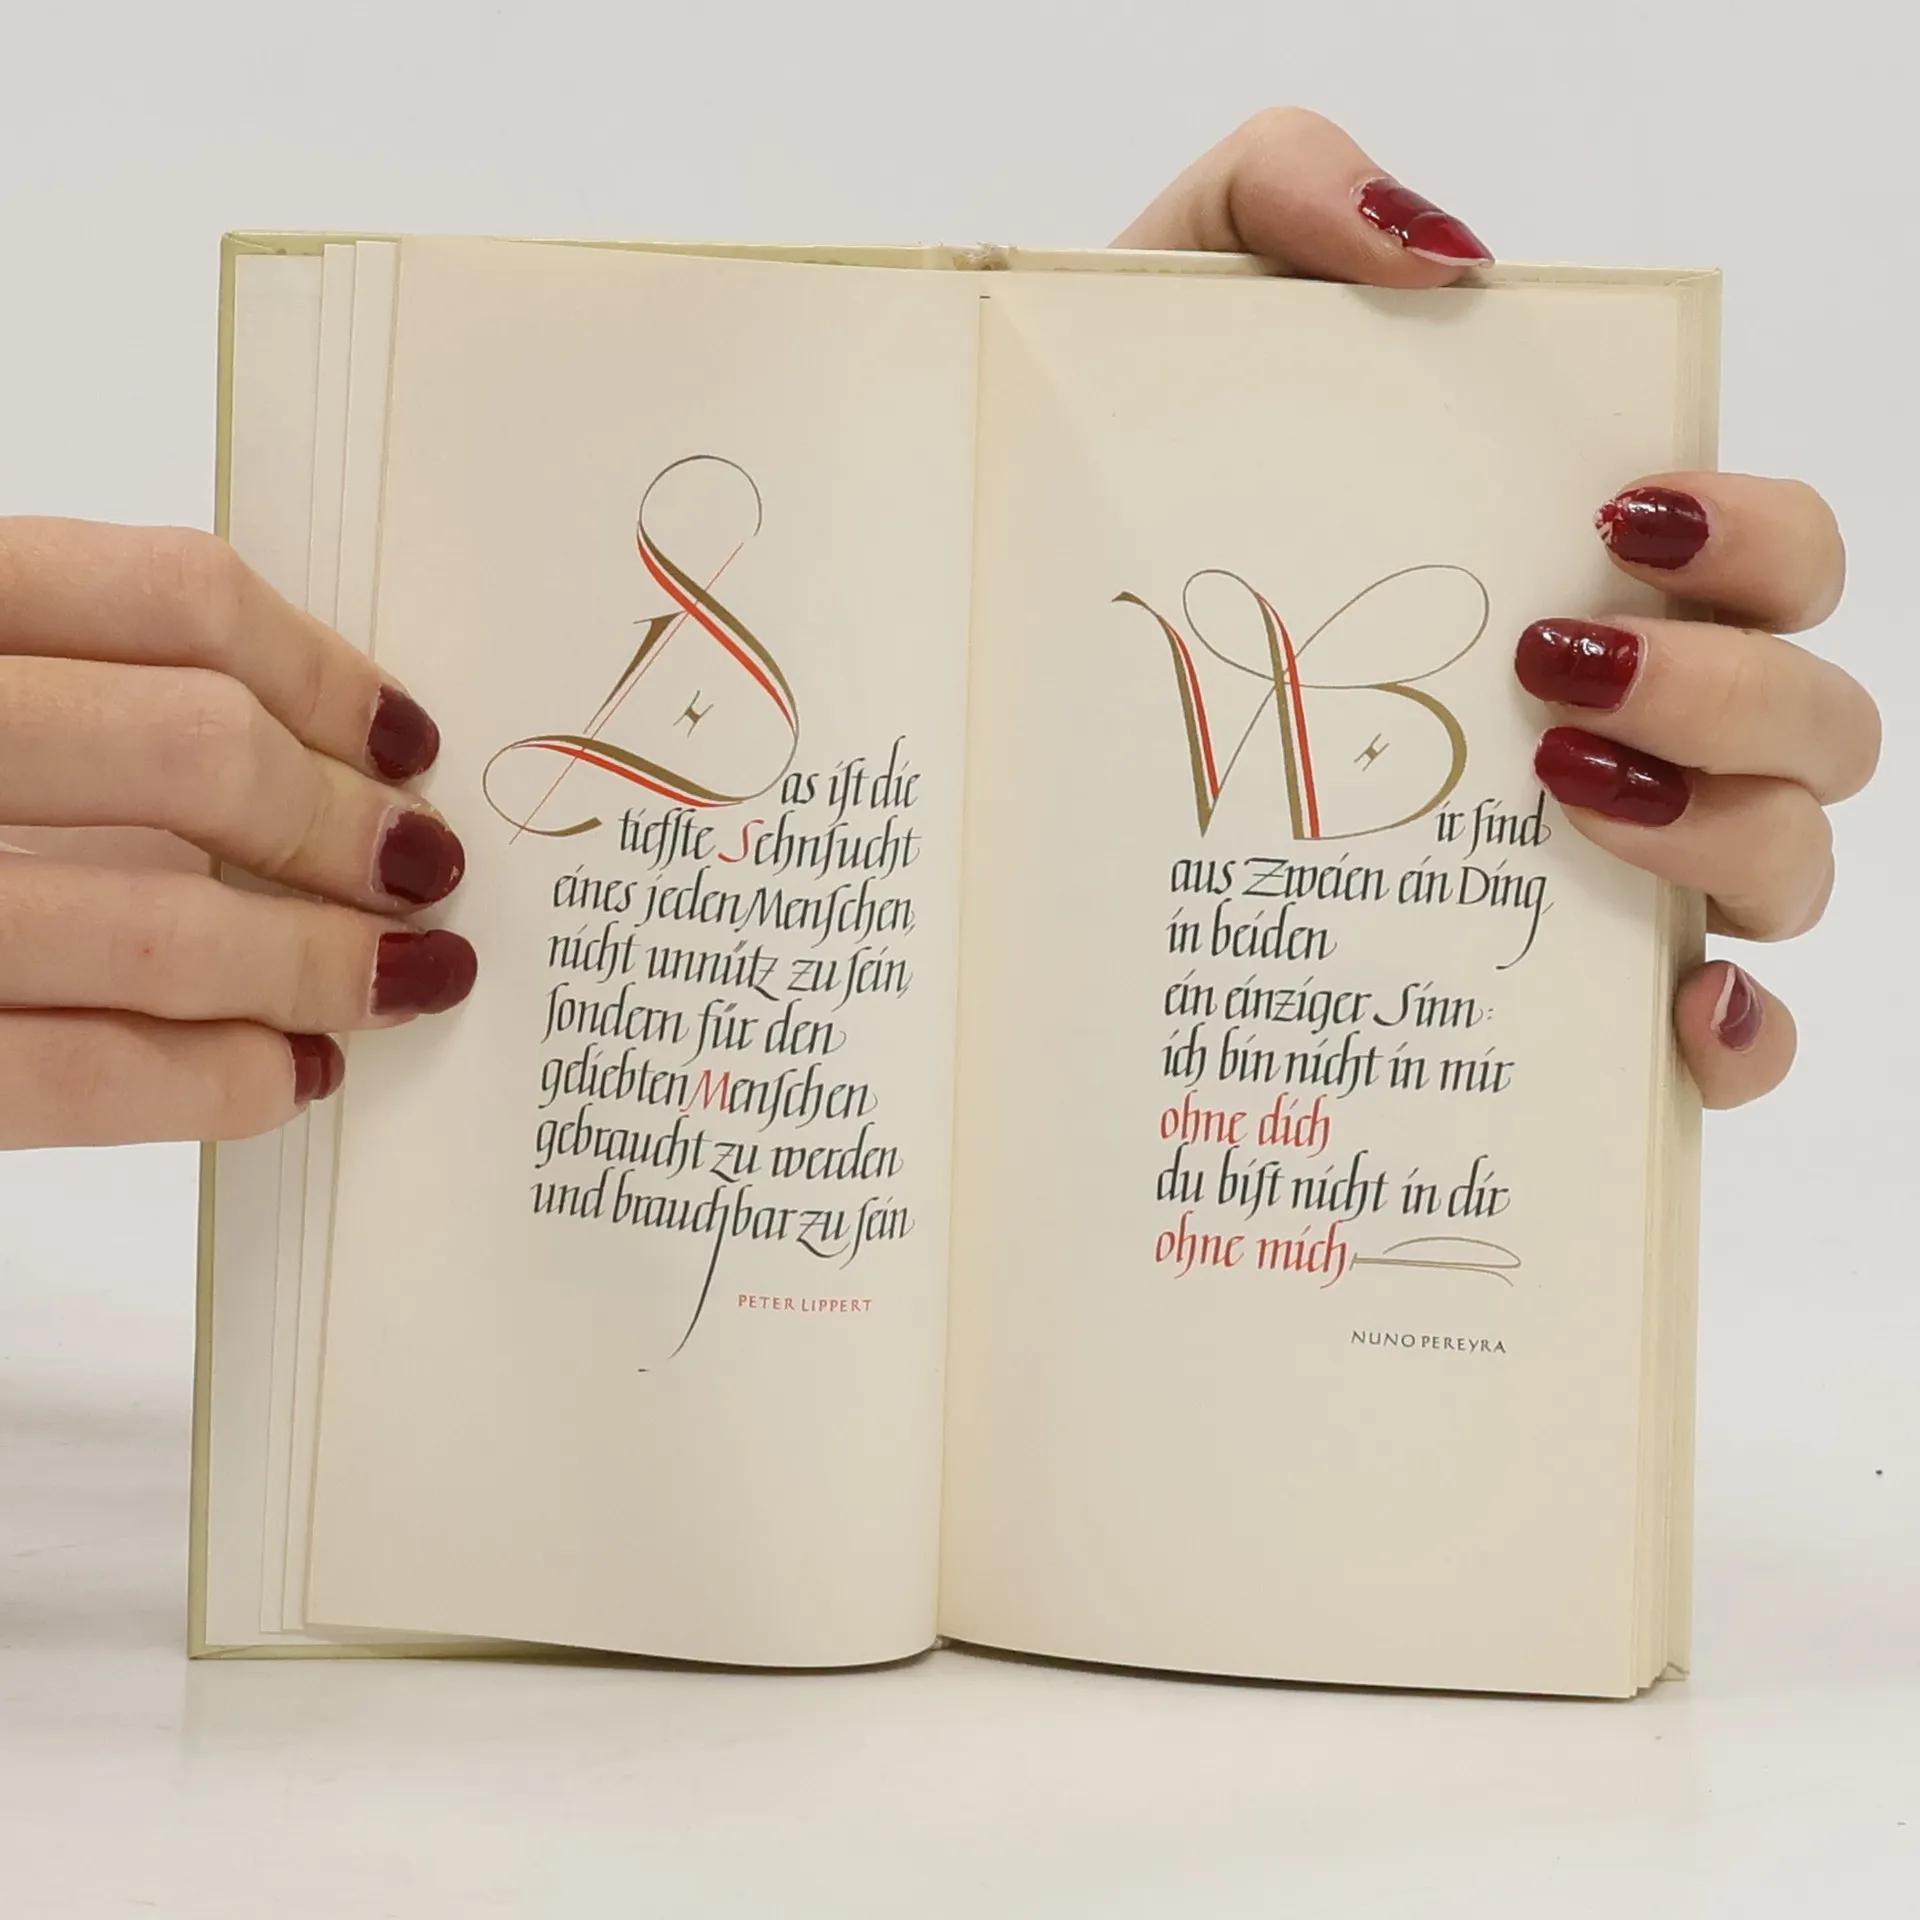 Das ist die
tiefste Sehnsucht
eines jeden Menschen,
nicht unnütz zu sein,
sondern für den
geliebten Menschen
gebraucht zu werden
und brauchbar zu sein
PETER LIPPERT
Wir sind
aus Zweien ein Ding,
in beiden
ein einziger Sinn:
ich bin nicht in mir
ohne dich
du bist nicht in dir
ohne mich
NUNO PEREYRA